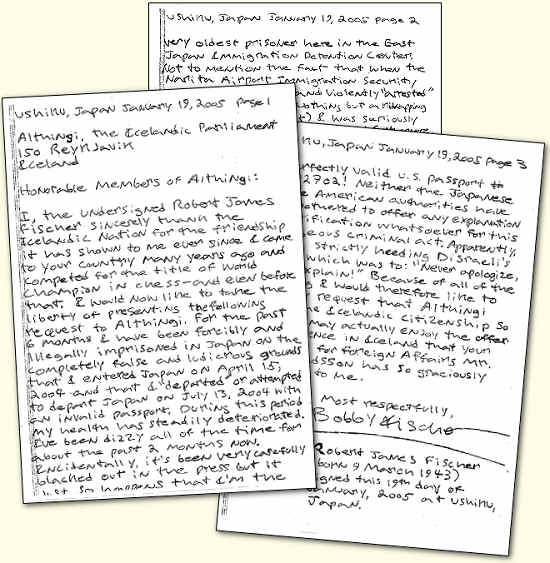 Ushiku, Japan January 19, 2005 page 1
Althingi, the Icelandic Parliament
150 Reykjavik
Iceland
Honorable Members of Althingi:
I, the undersigned Robert James
Fischer sincerely thank the
Icelandic Nation for the friendship
it has shown to me ever since I came
to your country many years ago and
competed for the title of World
Champion in chess–and even before
that. I would now like to take the
liberty of presenting the following
request to Althingi. For the past
6 months I have been forcibly and
illegally imprisoned in Japan on the
completely false and ludicrous grounds
that I entered Japan on April 15,
2004 and that I "departed" or attempted
to depart Japan on July 13, 2004 with
an invalid passport. During this period
my health has steadily deteriorated.
I've been dizzy all of the time for
about the past 2 months now.
Incidentally, it's been very carefully
blacked out in the press but it
just so happens that I'm the
Ushiku, Japan January 19, 2005 page 2
very oldest prisoner here in the East
Japan Immigration Detention Center.
Not to mention the fact that when the
Narita Airport Immigration Security
and violently "arrested"
nothing but a kidnapping
I was seriously
Japan January 19, 2005 page 3
valid U.S. passport #
2702! Neither the Japanese
American authorities have
to offer any explanation
whatsoever for this
criminal act. Apparently,
strictly heeding Disraeli's
which was to: "Never apologize,
Because of all of the
I would therefore like to
request that Althingi
Icelandic citizenship so
may actually enjoy the offer
in Iceland that your
for Foreign Affairs Mr.
has so graciously
to me.
Most respectfully,
Bobby Fischer
Robert James Fischer
born 9 March 1943)
signed this 19th day of
January, 2005 at Ushiku,
Japan.